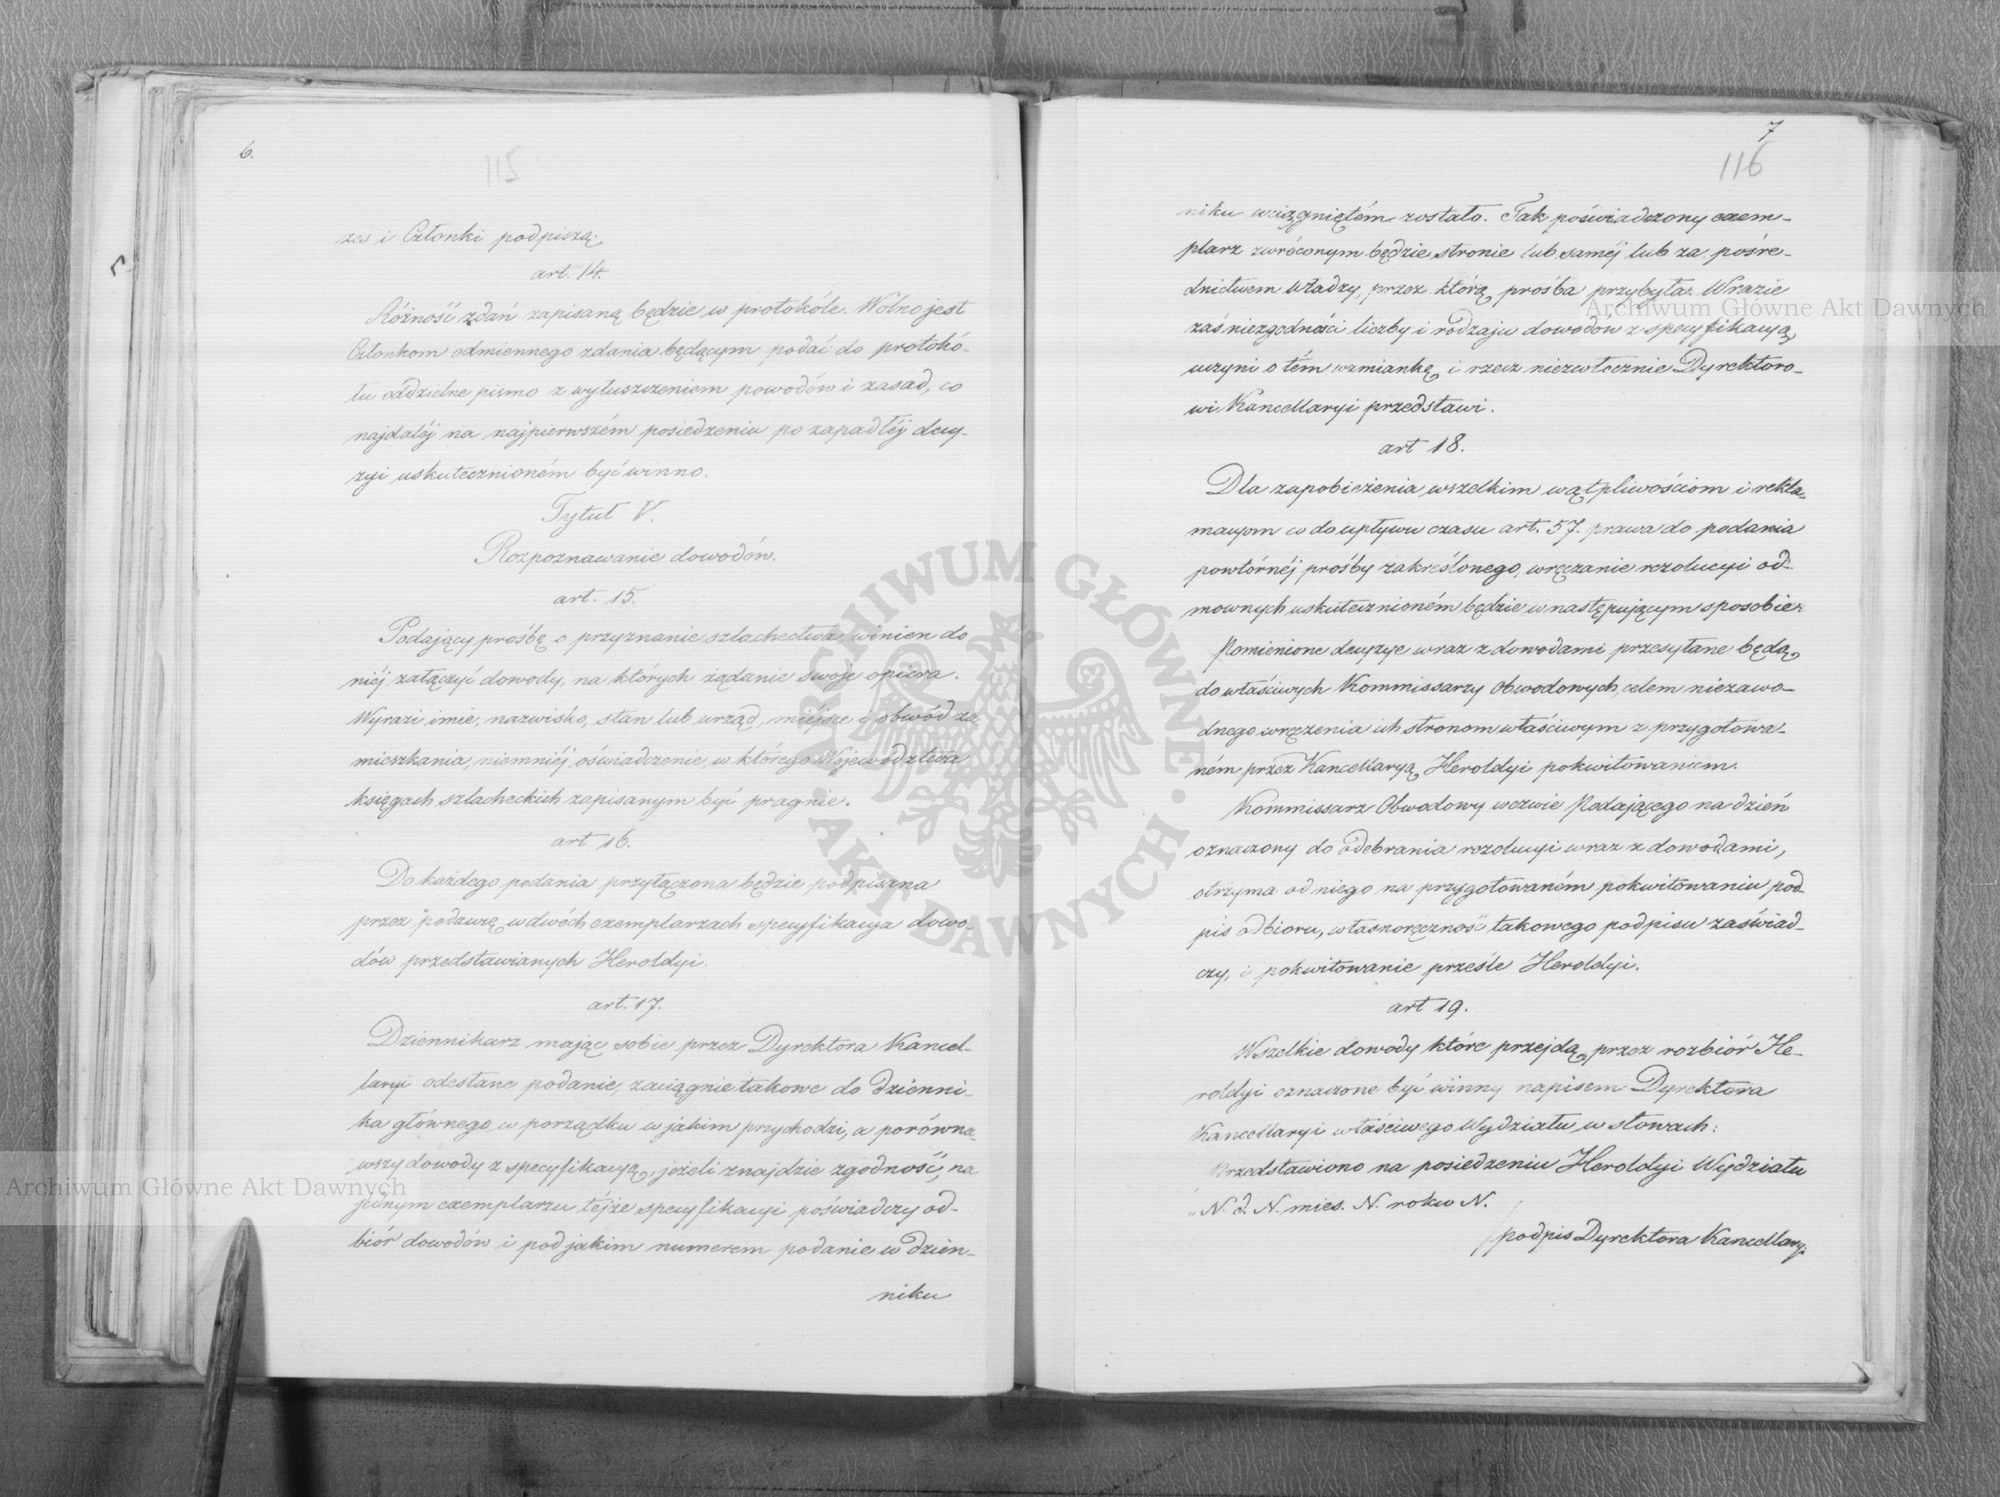 6.
zes i Członki podpiszą.
art. 14.
Różność zdań zapisaną będzie w protokóle. Wolno jest
Członkom odmiennego zdania będącym podać do protokó-
łu oddzielne pismo z wyłuszczeniem powodów i zasad, co
najdaléj na najpierwszém posiedzeniu po zapadłéj decy-
zyi uskutecznioném być winno.
Tytuł V.
Rozpoznawanie dowodów.
art. 15.
Podający prośbę o przyznanie szlachectwa winien do
niéj załączyć dowody, na których żądanie swoje opiera.
Wyrazi imie, nazwisko, stan lub urząd, miéjsce i obwód za-
mieszkania, niemniéj oświadczenie, w którego Województwa
księgach szlacheckich zapisanym być pragnie.
art 16.
Do każdego podania przyłączona będzie podpisana
przez podawcę w dwóch exemplarzach specyfikacya dowo-
dów przedstawianych Heroldyi.
art. 17.
Dziennikarz mając sobie przez Dyrektora Kancel-
laryi odesłane podanie, zaciągnie takowe do dzienni-
ka głównego w porządku w jakim przychodzi, a porówna-
wszy dowody z specyfikacyą, jeżeli znajdzie zgodność, na
jednym exemplarzu téjże specyfikacyi poświadczy od-
biór dowodów i pod jakim numerem podanie w dzien-
niku
7
116
niku wciągniętém zostało. Tak poświadczony exem-
plarz zwróconym będzie stronie lub saméj lub za pośre-
dnictwem władzy, przez którą prośba przybyła. W razie
zaś niezgodności liczby i rodzaju dowodów z specyfikacyą,
uczyni o tém wzmiankę i rzecz niezwłocznie Dyrektoro-
wi Kancellaryi przedstawi.
art 18.
Dla zapobieżenia wszelkim wątpliwościom i rekla-
macyom co do upływu czasu art. 57. prawa do podania
powtórnéj prośby zakreślonego, wręczanie rezolucyi od-
mownych uskutecznioném będzie w następującym sposobie:
Pomienione decyzye wraz z dowodami przesyłane będą
do właściwych Kommissarzy Obwodowych, celem niezawo-
dnego wręczenia ich stronom właściwym z przygotowa-
ném przez Kancellaryą Heroldyi pokwitowaniem.
Kommissarz Obwodowy wezwie Podającego na dzień
oznaczony do odebrania rezolucyi wraz z dowodami,
otrzyma od niego na przygotowaném pokwitowaniu pod-
pis odbioru, własnoręczność takowego podpisu zaświad-
czy, i pokwitowanie prześle Heroldyi.
art 19.
Wszelkie dowody które przejdą przez rozbiór He-
roldyi oznaczone być winny napisem Dyrektora
Kancellaryi właściwego Wydziału w słowach:
Przedstawiono na posiedzeniu Heroldyi Wydziału
„N. d. N. mies. N. roku N.
podpis Dyrektora Kancellaryi
Archiwum Główne Akt Dawnych
Archiwum Główne Akt Dawnych
ARCHIWUM GŁÓWNE · AKT DAWNYCH ·